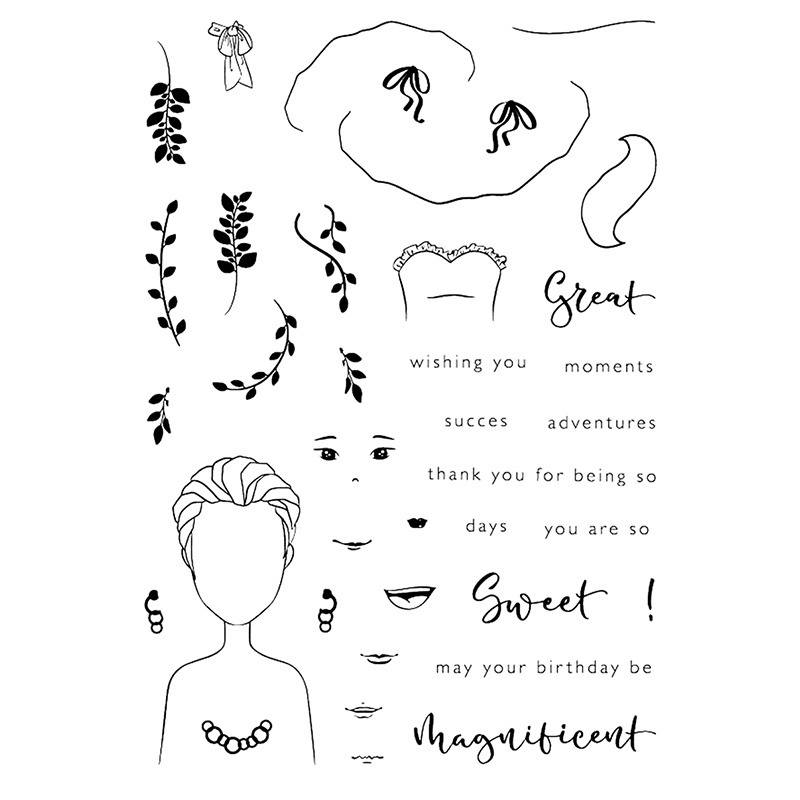 Great
wishing you moments
succes adventures
thank you for being so
days you are so
Sweet !
may your birthday be
magnificent